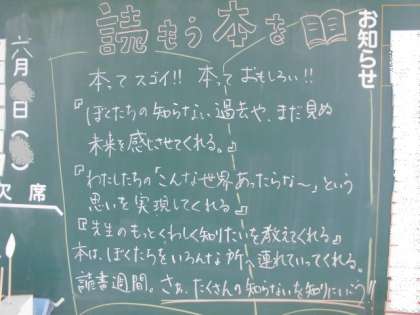 お知らせ
読もう本を
六月 日( )
欠席
本ってスゴイ!! 本っておもしろい!!
『ぼくたちの知らない過去や、まだ見ぬ
未来を感じさせてくれる。』
『わたしたちの「こんな世界あったらな〜」という
思いを実現してくれる』
『先生のもっとくわしく知りたいを教えてくれる』
本は、ぼくたちをいろんな所へ連れていってくれる。
読書週間。さぁ、たくさんの知らないを知りにいこう!!